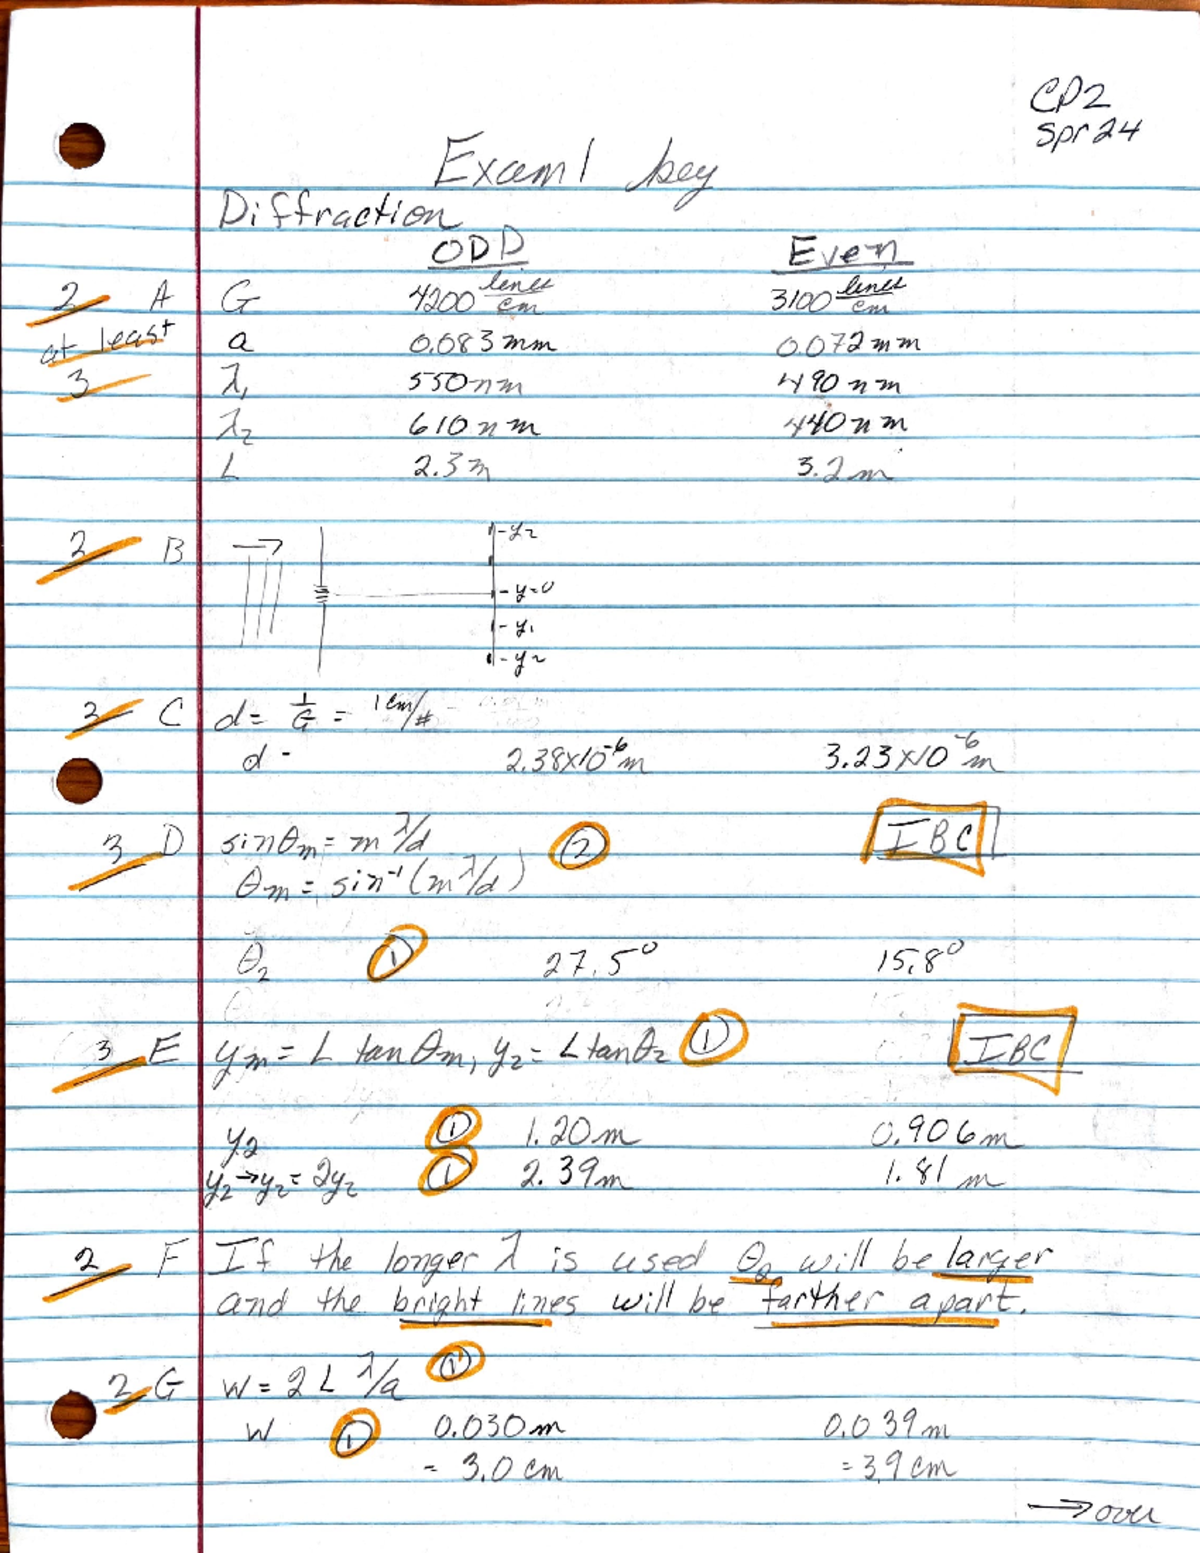 CP2
Spr 24
Exam 1 key
Diffraction
ODD Even
2 A G 4200 lines/cm 3100 lines/cm
at least a 0.083 mm 0.072 mm
3 λ₁ 550 nm 490 nm
λ₂ 610 nm 440 nm
L 2.3 m 3.2 m
2 B
- y₂
- y=0
- y₁
- y₂
C d = 1/G = 1 cm/#
d - 2.38x10⁻⁶ m 3.23x10⁻⁶ m
3 D sinθm = m λ/d ② IBC
θm = sin⁻¹(m λ/d)
θ₂ ① 27.5° 15.8°
3 E ym = L tan θm, y₂ = L tan θ₂ ① IBC
y₂ ① 1.20 m 0.906 m
y₂→y₂ = 2y₂ ① 2.39 m 1.81 m
2 F If the longer λ is used θ₂ will be larger
and the bright lines will be farther apart.
2 G W = 2 L λ/a ①
W ① 0.030 m 0.039 m
= 3.0 cm = 3.9 cm
→ over